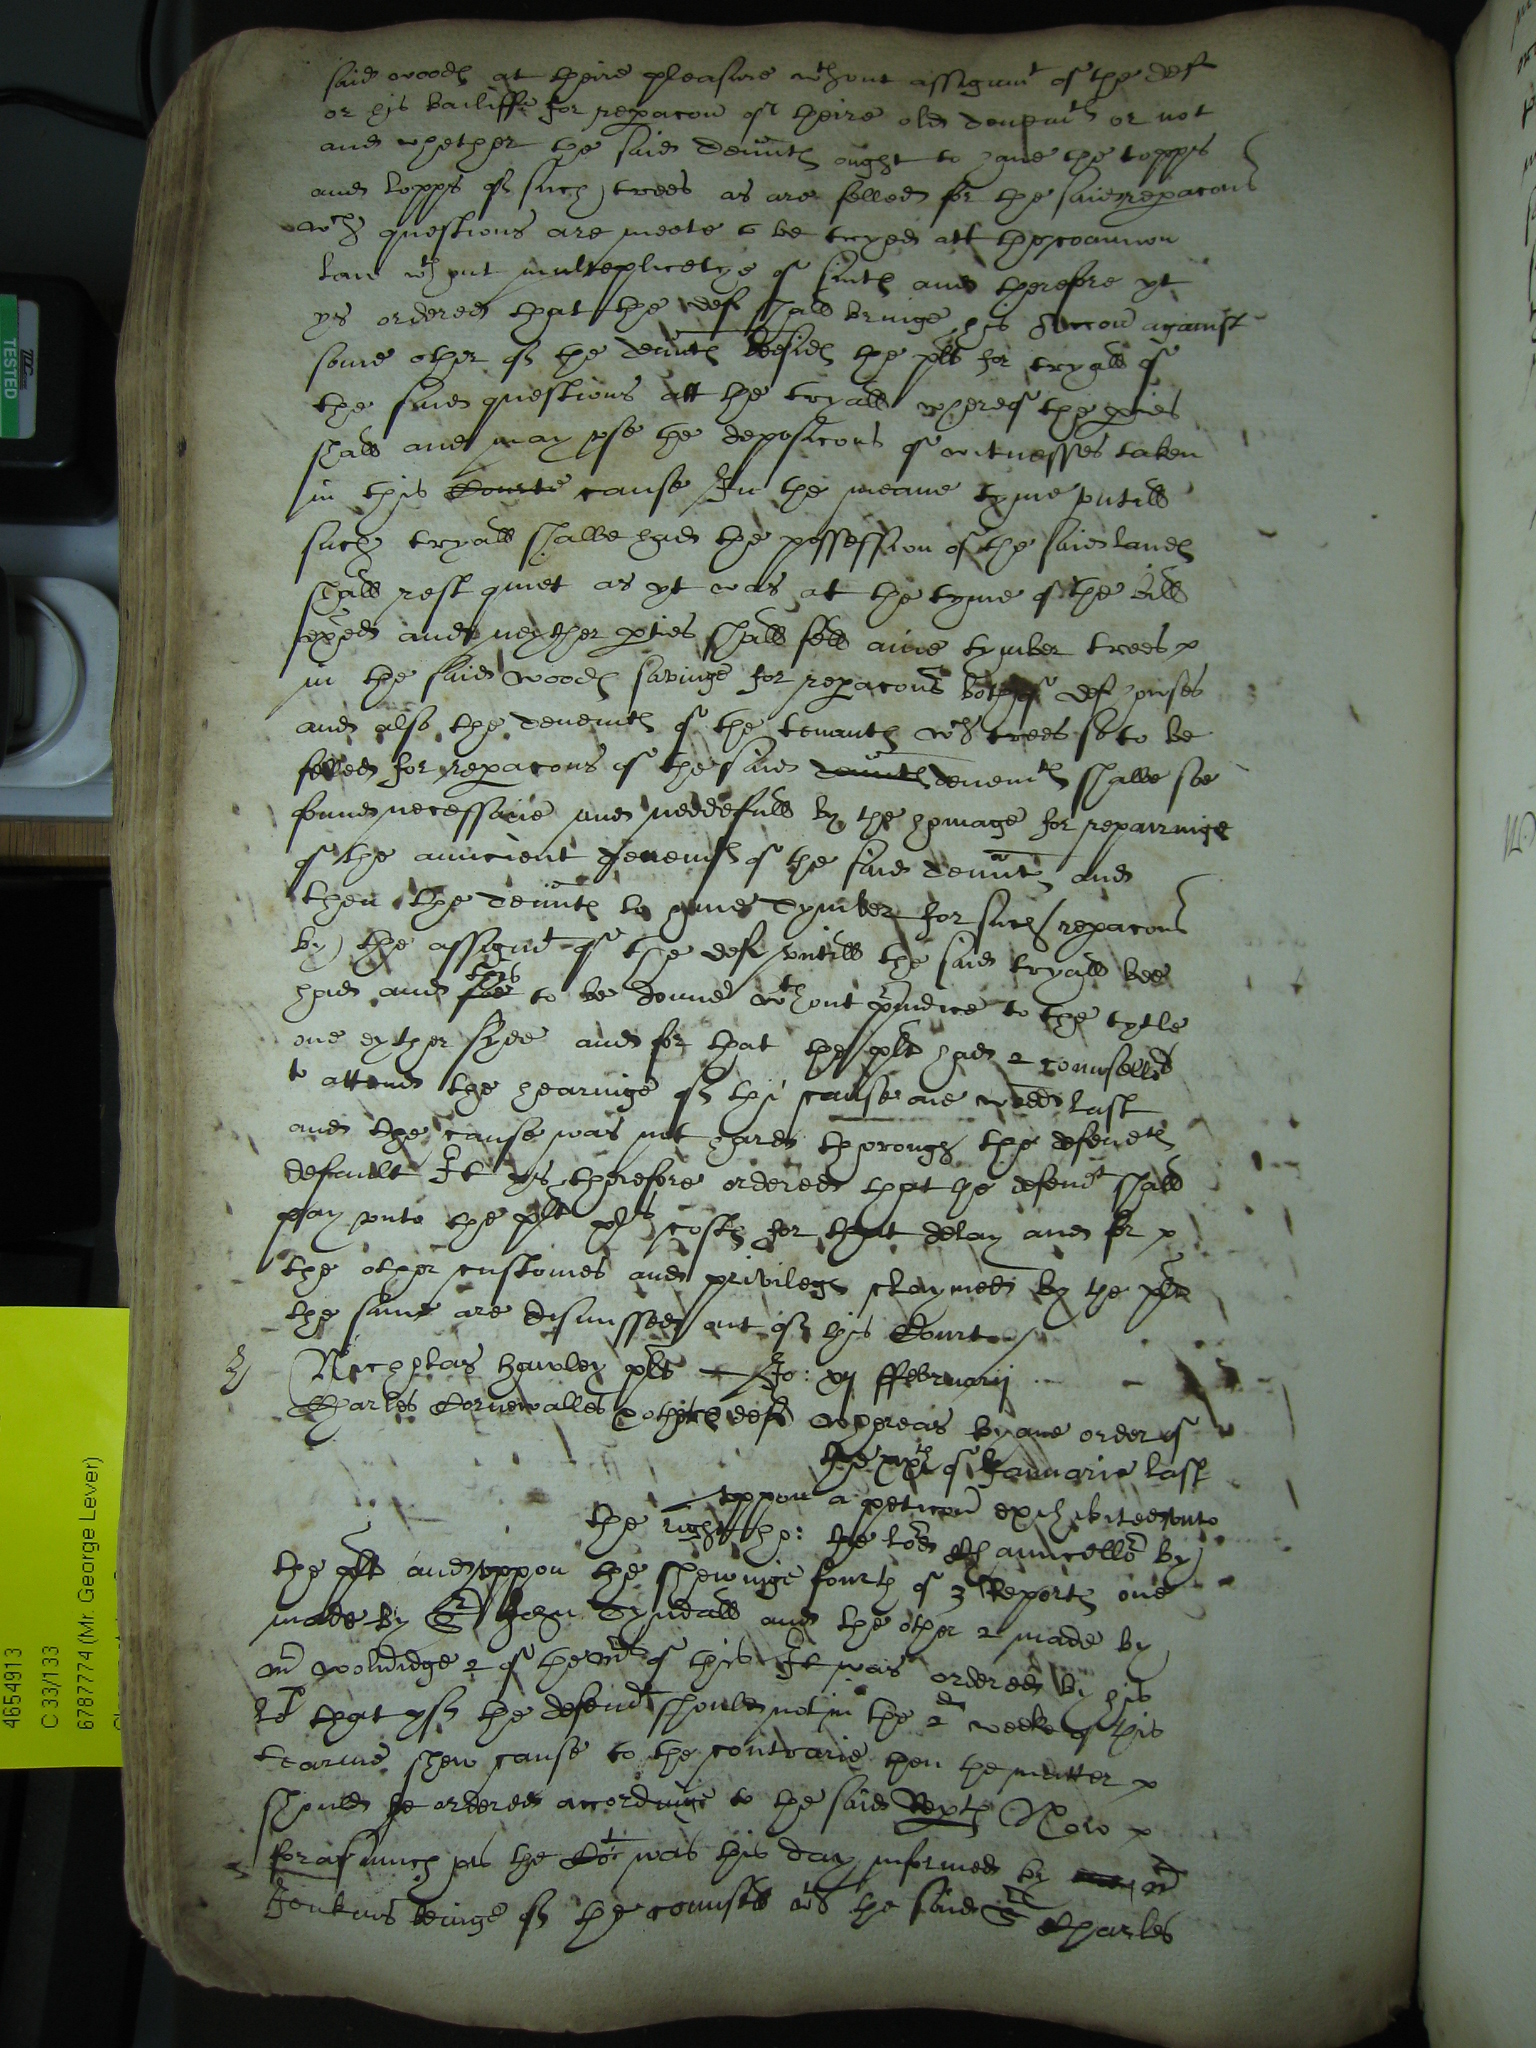 said woodes at theire pleasure wthout assignmt of the def
or his bailiffe for repacon of theire old tenemtes or not
and whether the said tenntes ought to have the topps
and lopps of such trees as are felled for the said repacons
wch questions are meete to be tryed att the common
law wthout multeplicetye of suites and therefore yt
ys ordered that the def shall bringe his accon against
some other of the tenntes besides the plts for tryall of
the said questions att the tryall whereof the pties
shall and may use the deposicons of witnesses taken
in this Courte cause In the meane tyme untill
such tryall shalbe had the possession of the said landes
shall rest quiet as yt was at the tyme of the bill
exhibited and neyther pties shall fell anie tymber trees
in the said woodes savinge for repacons both of def houses
and also the tenemtes of the tenantes wch trees so to be
felled for repacons of the said tenntes tenemtes shalbe soe
found necessarie and needefull by the homage for repairinge
of the auncient tenemtes of the said tenntes and
then the tenntes to have Tymber for such repacons
by the assignmt of the def untill the said tryall bee
had and soe this to be donne wthout preiudice to the tytle
one eyther syde and for that the plts had 2 counsellrs
to attend the hearinge of this cause one wedd last
and the cause was not hard thorough the defendtes
default It ys therefore ordered that the defendt shall
pay unto the plts xls costes for that delay and for
the other customes and privileges claymed by the plts
the same are dismissed out of this Court
Nicholas Hawley plt Jo: xj ffebruarij
Charles Cornewalles militem def Whereas by one order of
the xxth of Januarie last
uppon a peticon exhibited unto
the right ho: the lord Chauncellor by
the plt and uppon the shewinge fourth of 3 Reportes one
made by Sr John Tyndall and the other 2 made by
mr wolridge 2 of the mrs of this It was ordered by his
Lp that yf the defendt should not in the 2 weeke of this
tearme shew cause to the contrarie then the matter
should be ordered accordinge to the said Reptes Now
forasmuch as the Cort was this day informed by mr
Jenkins beinge of the counsell wth the said Sr Charles
TESTED
4654913
C 33/133
6787774 (Mr. George Lever)